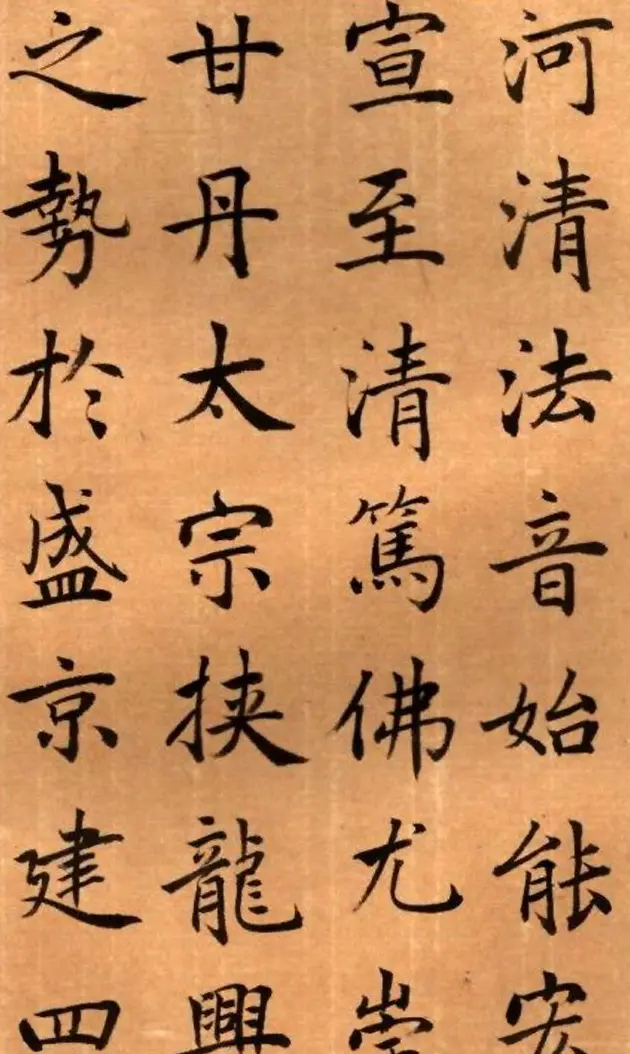 河清法音始能宏
宣至清篤佛尤崇
甘丹太宗挟龍興
之勢於盛京建四